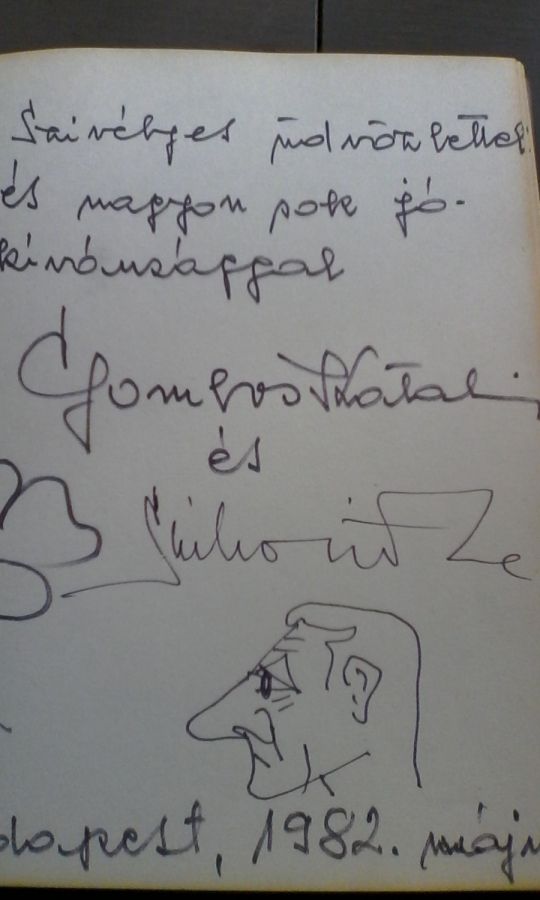 Szivélyes üdvözlettel
és nagyon sok jó-
kívánsággal
Gombos Katalin
és
Sinkovits
dapest, 1982. máju